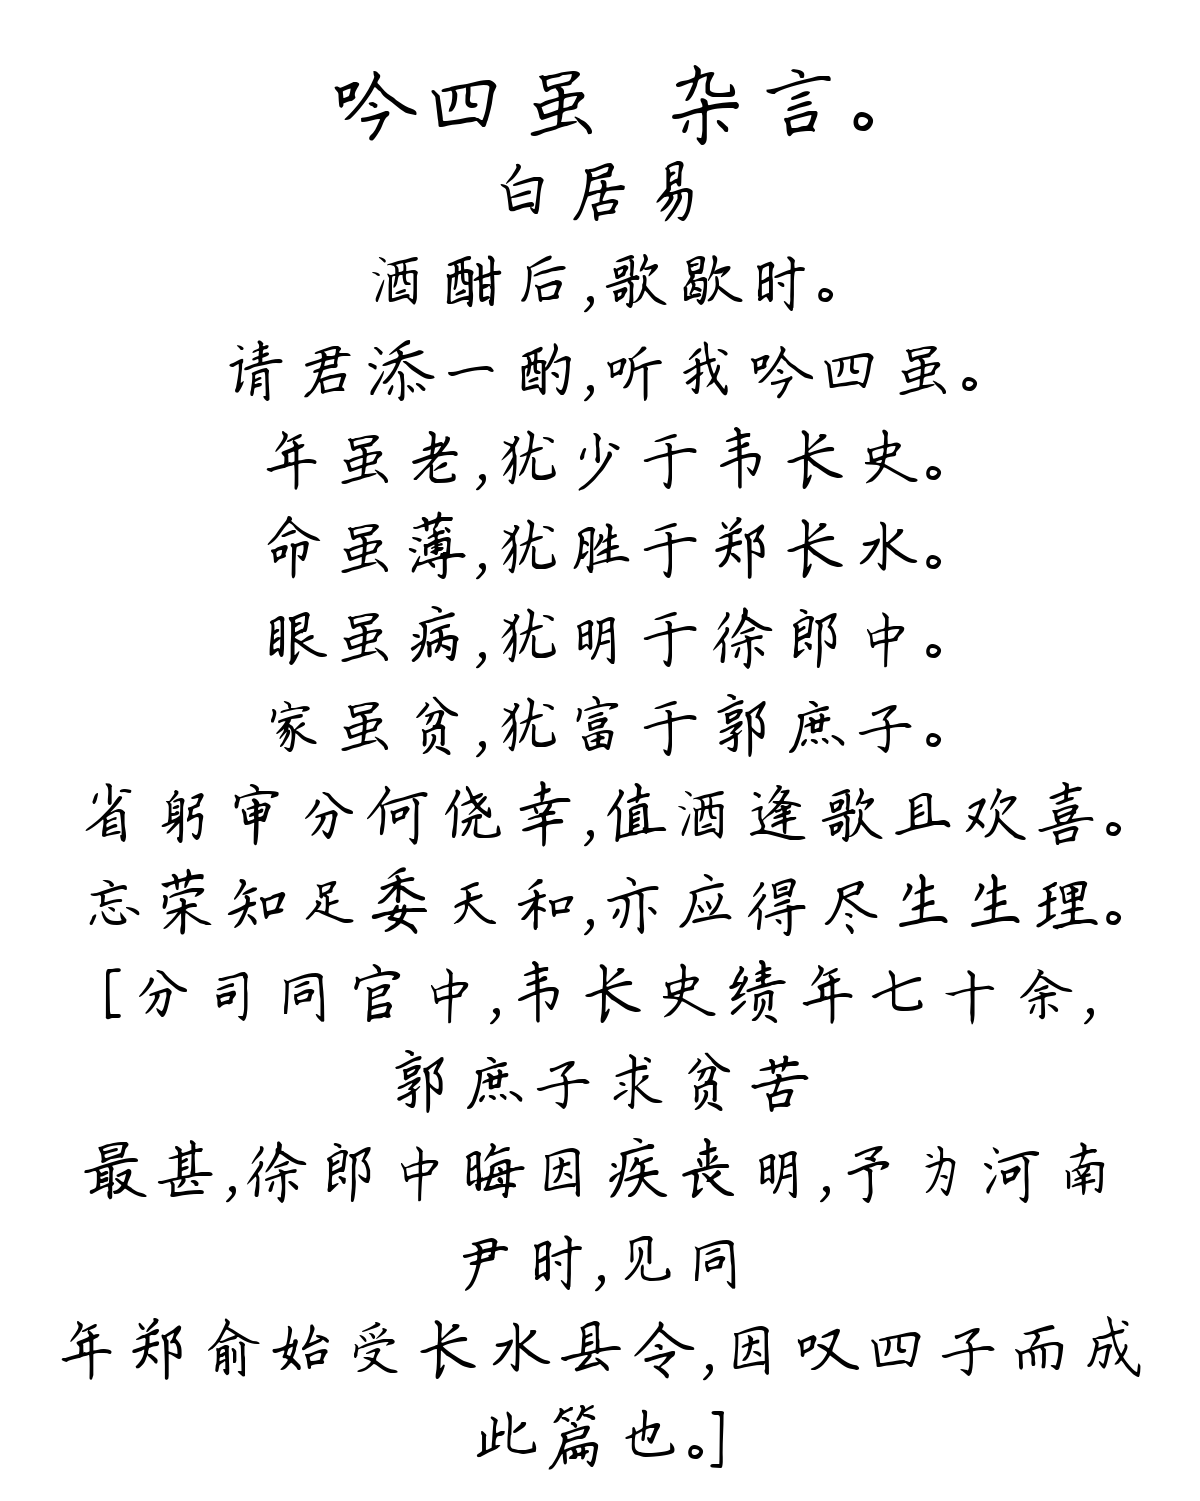 吟四虽 杂言。
白居易
酒酣后,歌歇时。
请君添一酌,听我吟四虽。
年虽老,犹少于韦长史。
命虽薄,犹胜于郑长水。
眼虽病,犹明于徐郎中。
家虽贫,犹富于郭庶子。
省躬审分何侥幸,值酒逢歌且欢喜。
忘荣知足委天和,亦应得尽生生理。
[分司同官中,韦长史绩年七十余,
郭庶子求贫苦
最甚,徐郎中晦因疾丧明,予为河南
尹时,见同
年郑俞始受长水县令,因叹四子而成
此篇也。]